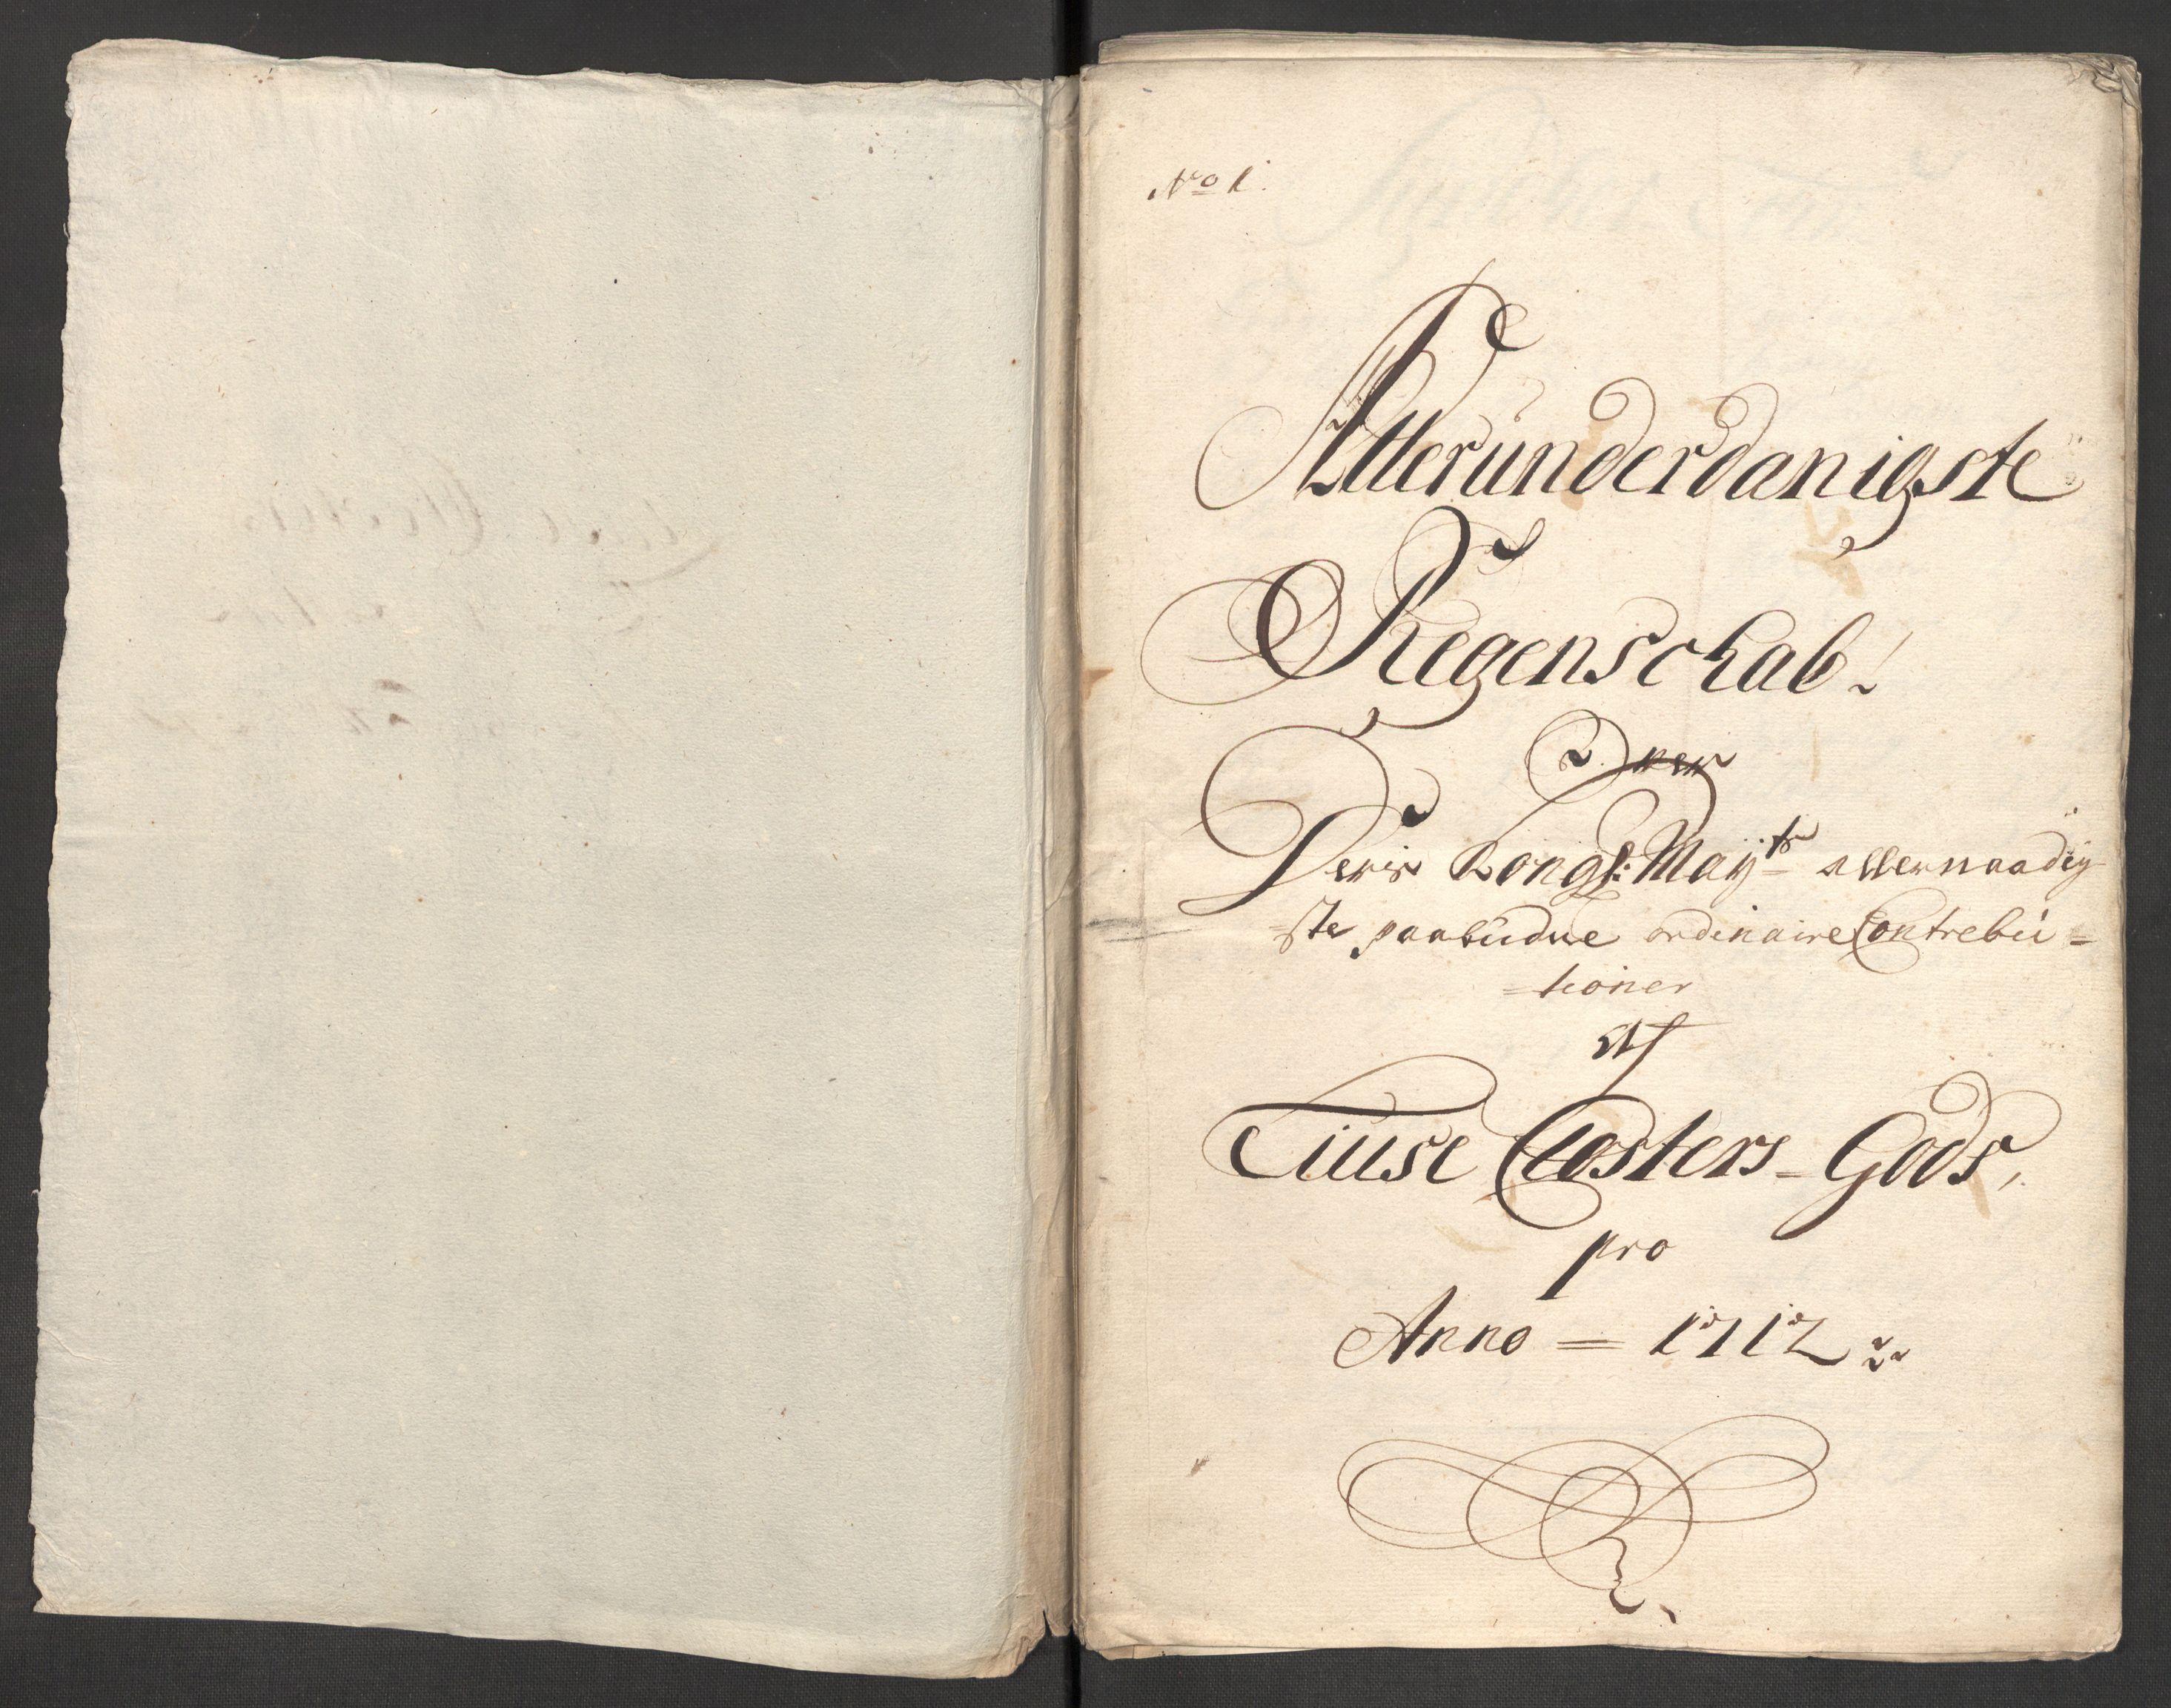 No 1.
Allerunderdanigste
Regenschab!
Over
Deris Kongl: Mayts allernaadig-
=ste paabudne ordinaire Contrebu=
=tioner
af
Tiuse Closters- Gods,
pro
Anno = 1712